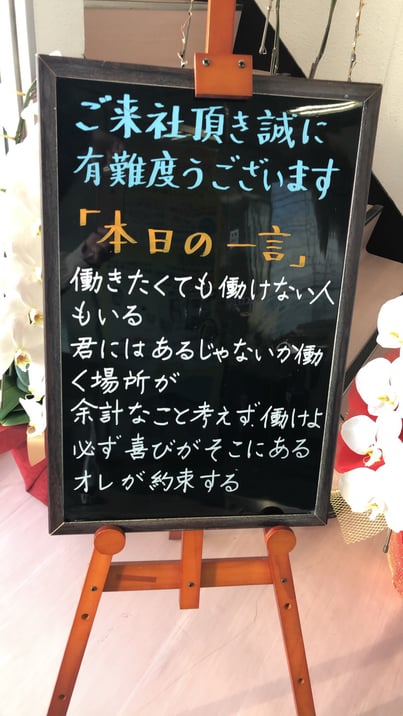 ご来社頂き誠に
有難度うございます
「本日の一言」
働きたくても働けない人
もいる
君にはあるじゃないか働
く場所が
余計なこと考えず、働けよ
必ず喜びがそこにある
オレが約束する